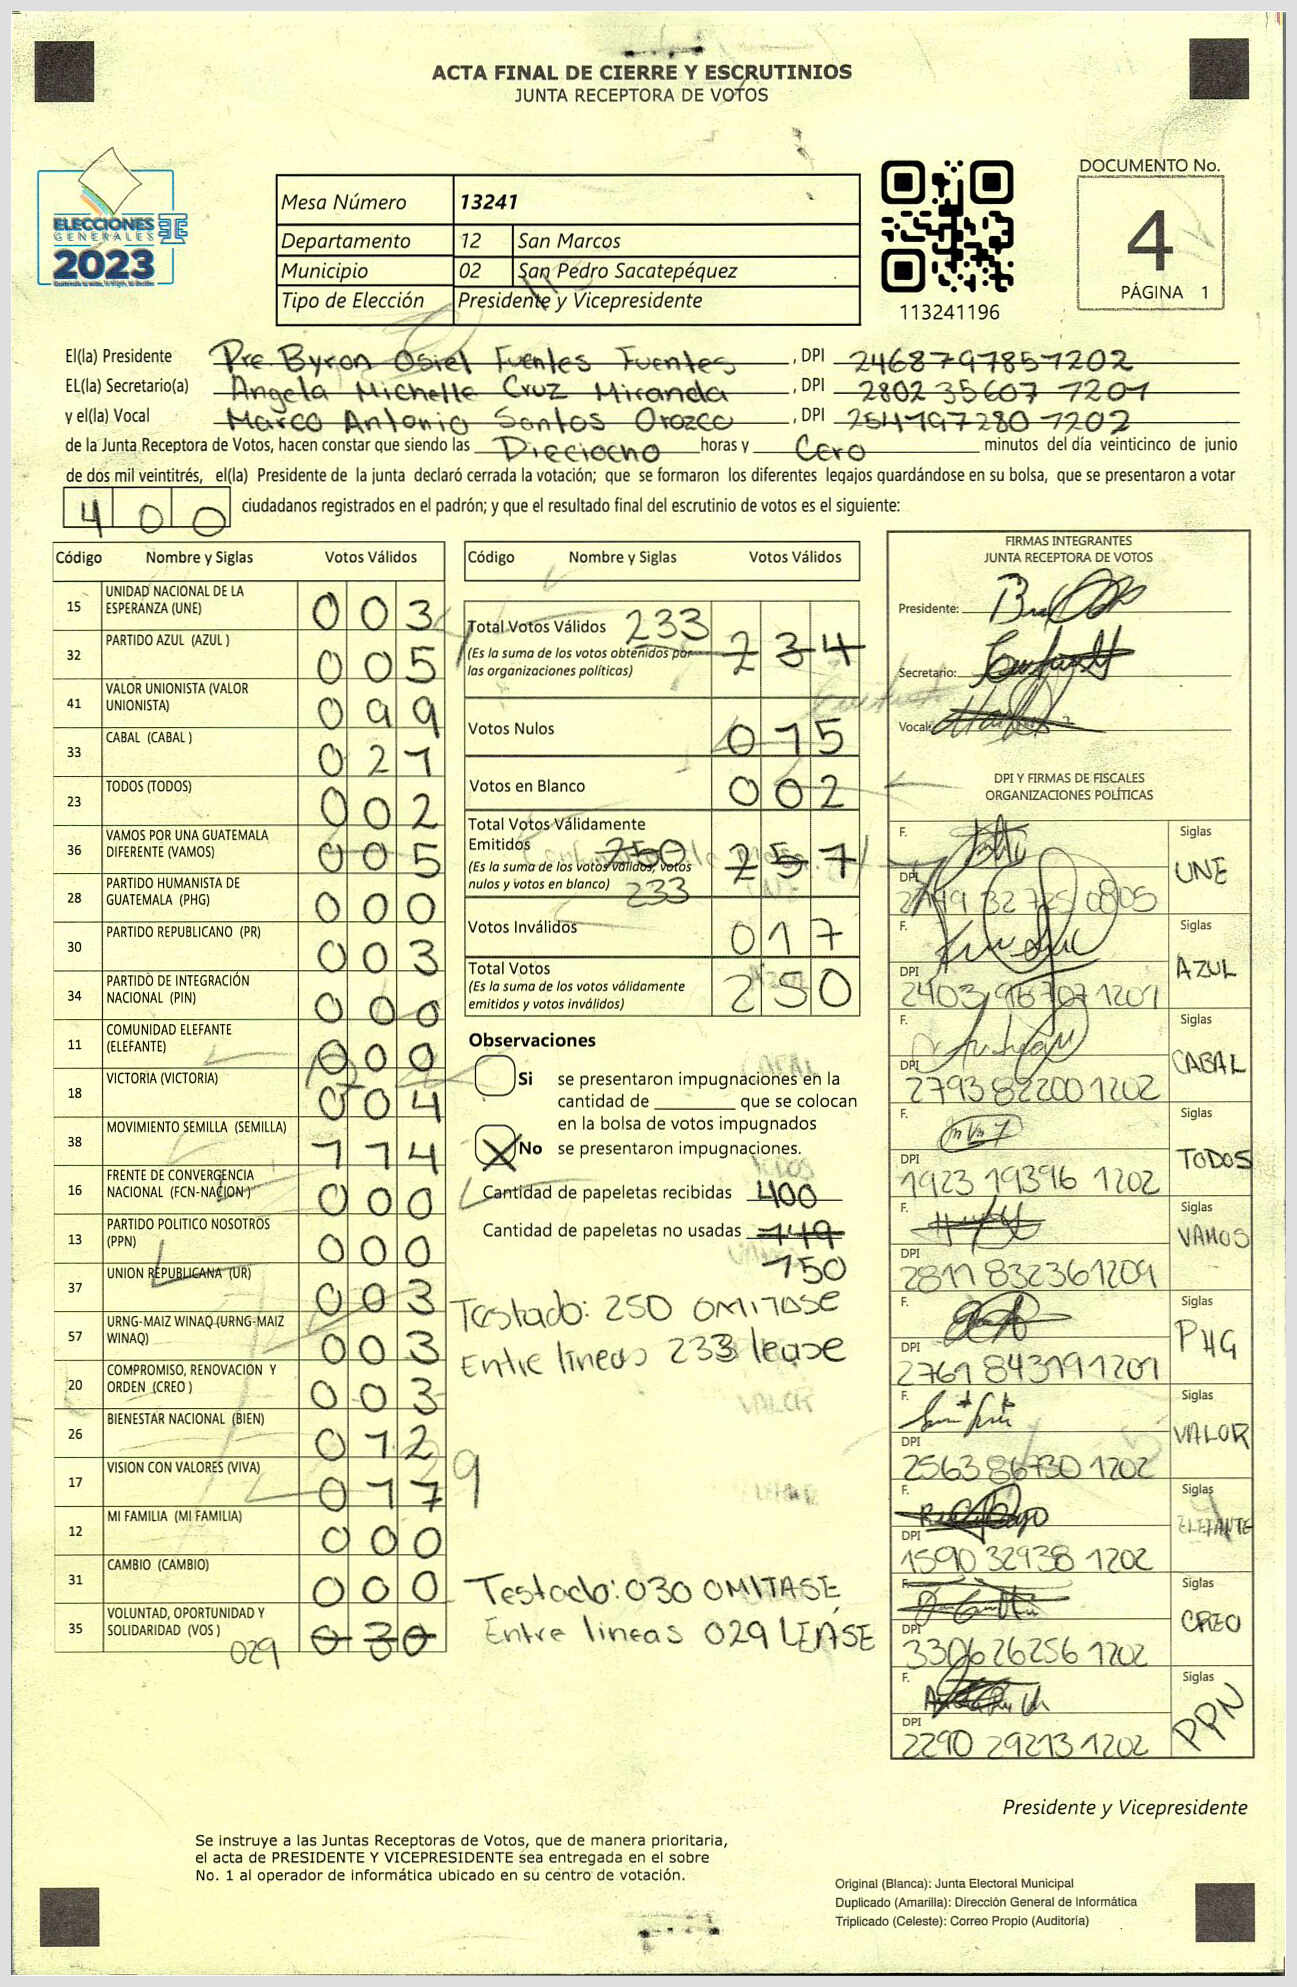 ACTA FINAL DE CIERRE Y ESCRUTINIOS
JUNTA RECEPTORA DE VOTOS
ELECCIONES
GENERALES
2023
Mesa Número 13241
Departamento 12 San Marcos
Municipio 02 San Pedro Sacatepéquez
Tipo de Elección Presidente y Vicepresidente
113241196
DOCUMENTO No.
4
PÁGINA 1
El(la) Presidente Pre Byron Osiel Fuentes Fuentes , DPI 2468797851202
EL(la) Secretario(a) Angela Michelle Cruz Miranda , DPI 2802 35607 1201
y el(la) Vocal Marco Antonio Santos Orozco , DPI 2541972801202
de la Junta Receptora de Votos, hacen constar que siendo las Dieciocho horas y Cero minutos del día veinticinco de junio
de dos mil veintitrés, el(la) Presidente de la junta declaró cerrada la votación; que se formaron los diferentes legajos guardándose en su bolsa, que se presentaron a votar
400 ciudadanos registrados en el padrón; y que el resultado final del escrutinio de votos es el siguiente:
Código Nombre y Siglas Votos Válidos
15 UNIDAD NACIONAL DE LA ESPERANZA (UNE) 003
32 PARTIDO AZUL (AZUL ) 005
41 VALOR UNIONISTA (VALOR UNIONISTA) 099
33 CABAL (CABAL ) 021
23 TODOS (TODOS) 002
36 VAMOS POR UNA GUATEMALA DIFERENTE (VAMOS) 005
28 PARTIDO HUMANISTA DE GUATEMALA (PHG) 000
30 PARTIDO REPUBLICANO (PR) 003
34 PARTIDO DE INTEGRACIÓN NACIONAL (PIN) 000
11 COMUNIDAD ELEFANTE (ELEFANTE) 000
18 VICTORIA (VICTORIA) 004
38 MOVIMIENTO SEMILLA (SEMILLA) 114
16 FRENTE DE CONVERGENCIA NACIONAL (FCN-NACION ) 000
13 PARTIDO POLITICO NOSOTROS (PPN) 000
37 UNION REPUBLICANA (UR) 003
57 URNG-MAIZ WINAQ (URNG-MAIZ WINAQ) 003
20 COMPROMISO, RENOVACION Y ORDEN (CREO ) 003
26 BIENESTAR NACIONAL (BIEN) 012
17 VISION CON VALORES (VIVA) 017
9
12 MI FAMILIA (MI FAMILIA) 000
31 CAMBIO (CAMBIO) 000
35 VOLUNTAD, OPORTUNIDAD Y SOLIDARIDAD (VOS ) 029 030
Código Nombre y Siglas Votos Válidos
Total Votos Válidos 233 234
(Es la suma de los votos obtenidos por
las organizaciones políticas)
Votos Nulos 015
Votos en Blanco 002
Total Votos Válidamente
Emitidos 250 251
(Es la suma de los votos válidos, votos
nulos y votos en blanco) 233
Votos Inválidos 017
Total Votos 250
(Es la suma de los votos válidamente
emitidos y votos inválidos)
Observaciones
Si se presentaron impugnaciones en la
cantidad de ________ que se colocan
en la bolsa de votos impugnados
X No se presentaron impugnaciones.
Cantidad de papeletas recibidas 400
Cantidad de papeletas no usadas 149
150
Testado: 250 OMITASE
Entre lineas 233 lease
Testado: 030 OMITASE
Entre lineas 029 LEASE
FIRMAS INTEGRANTES
JUNTA RECEPTORA DE VOTOS
Presidente:
Secretario:
Vocal:
DPI Y FIRMAS DE FISCALES
ORGANIZACIONES POLÍTICAS
F. Siglas UNE
DPI 2749 32725 0805
F. Siglas AZUL
DPI 2403 96707 1201
F. Siglas CABAL
DPI 2793 82200 1202
F. Siglas TODOS
DPI 1923 19396 1202
F. Siglas VAMOS
DPI 2811 83236 1209
F. Siglas PHG
DPI 2761 84319 1201
F. Siglas VALOR
DPI 2563 86730 1202
F. Siglas ELEFANTE
DPI 1590 32938 1202
F. Siglas CREO
DPI 3306 26256 1202
F. Siglas PPN
DPI 2290 29213 1202
Presidente y Vicepresidente
Se instruye a las Juntas Receptoras de Votos, que de manera prioritaria,
el acta de PRESIDENTE Y VICEPRESIDENTE sea entregada en el sobre
No. 1 al operador de informática ubicado en su centro de votación.
Original (Blanca): Junta Electoral Municipal
Duplicado (Amarilla): Dirección General de Informática
Triplicado (Celeste): Correo Propio (Auditoría)